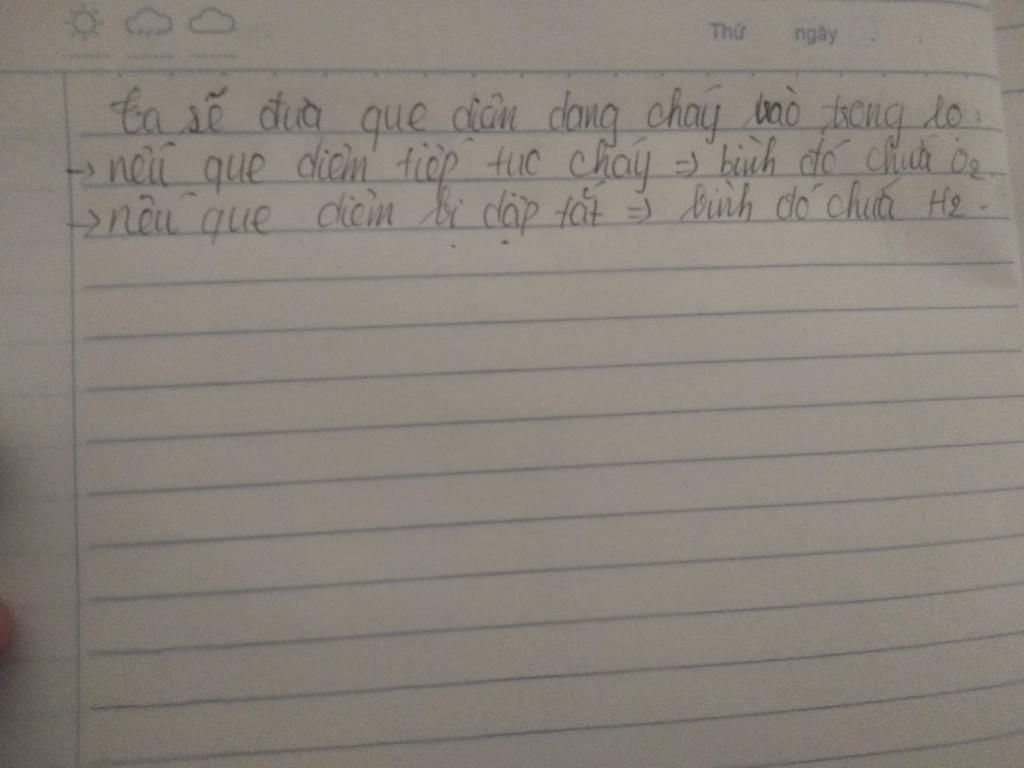 Thứ ngày
ta sẽ đưa que diêm đang cháy vào trong lọ.
→ nếu que diêm tiếp tục cháy => bình đó chứa O2.
→ nếu que diêm bị dập tắt => bình đó chứa H2.